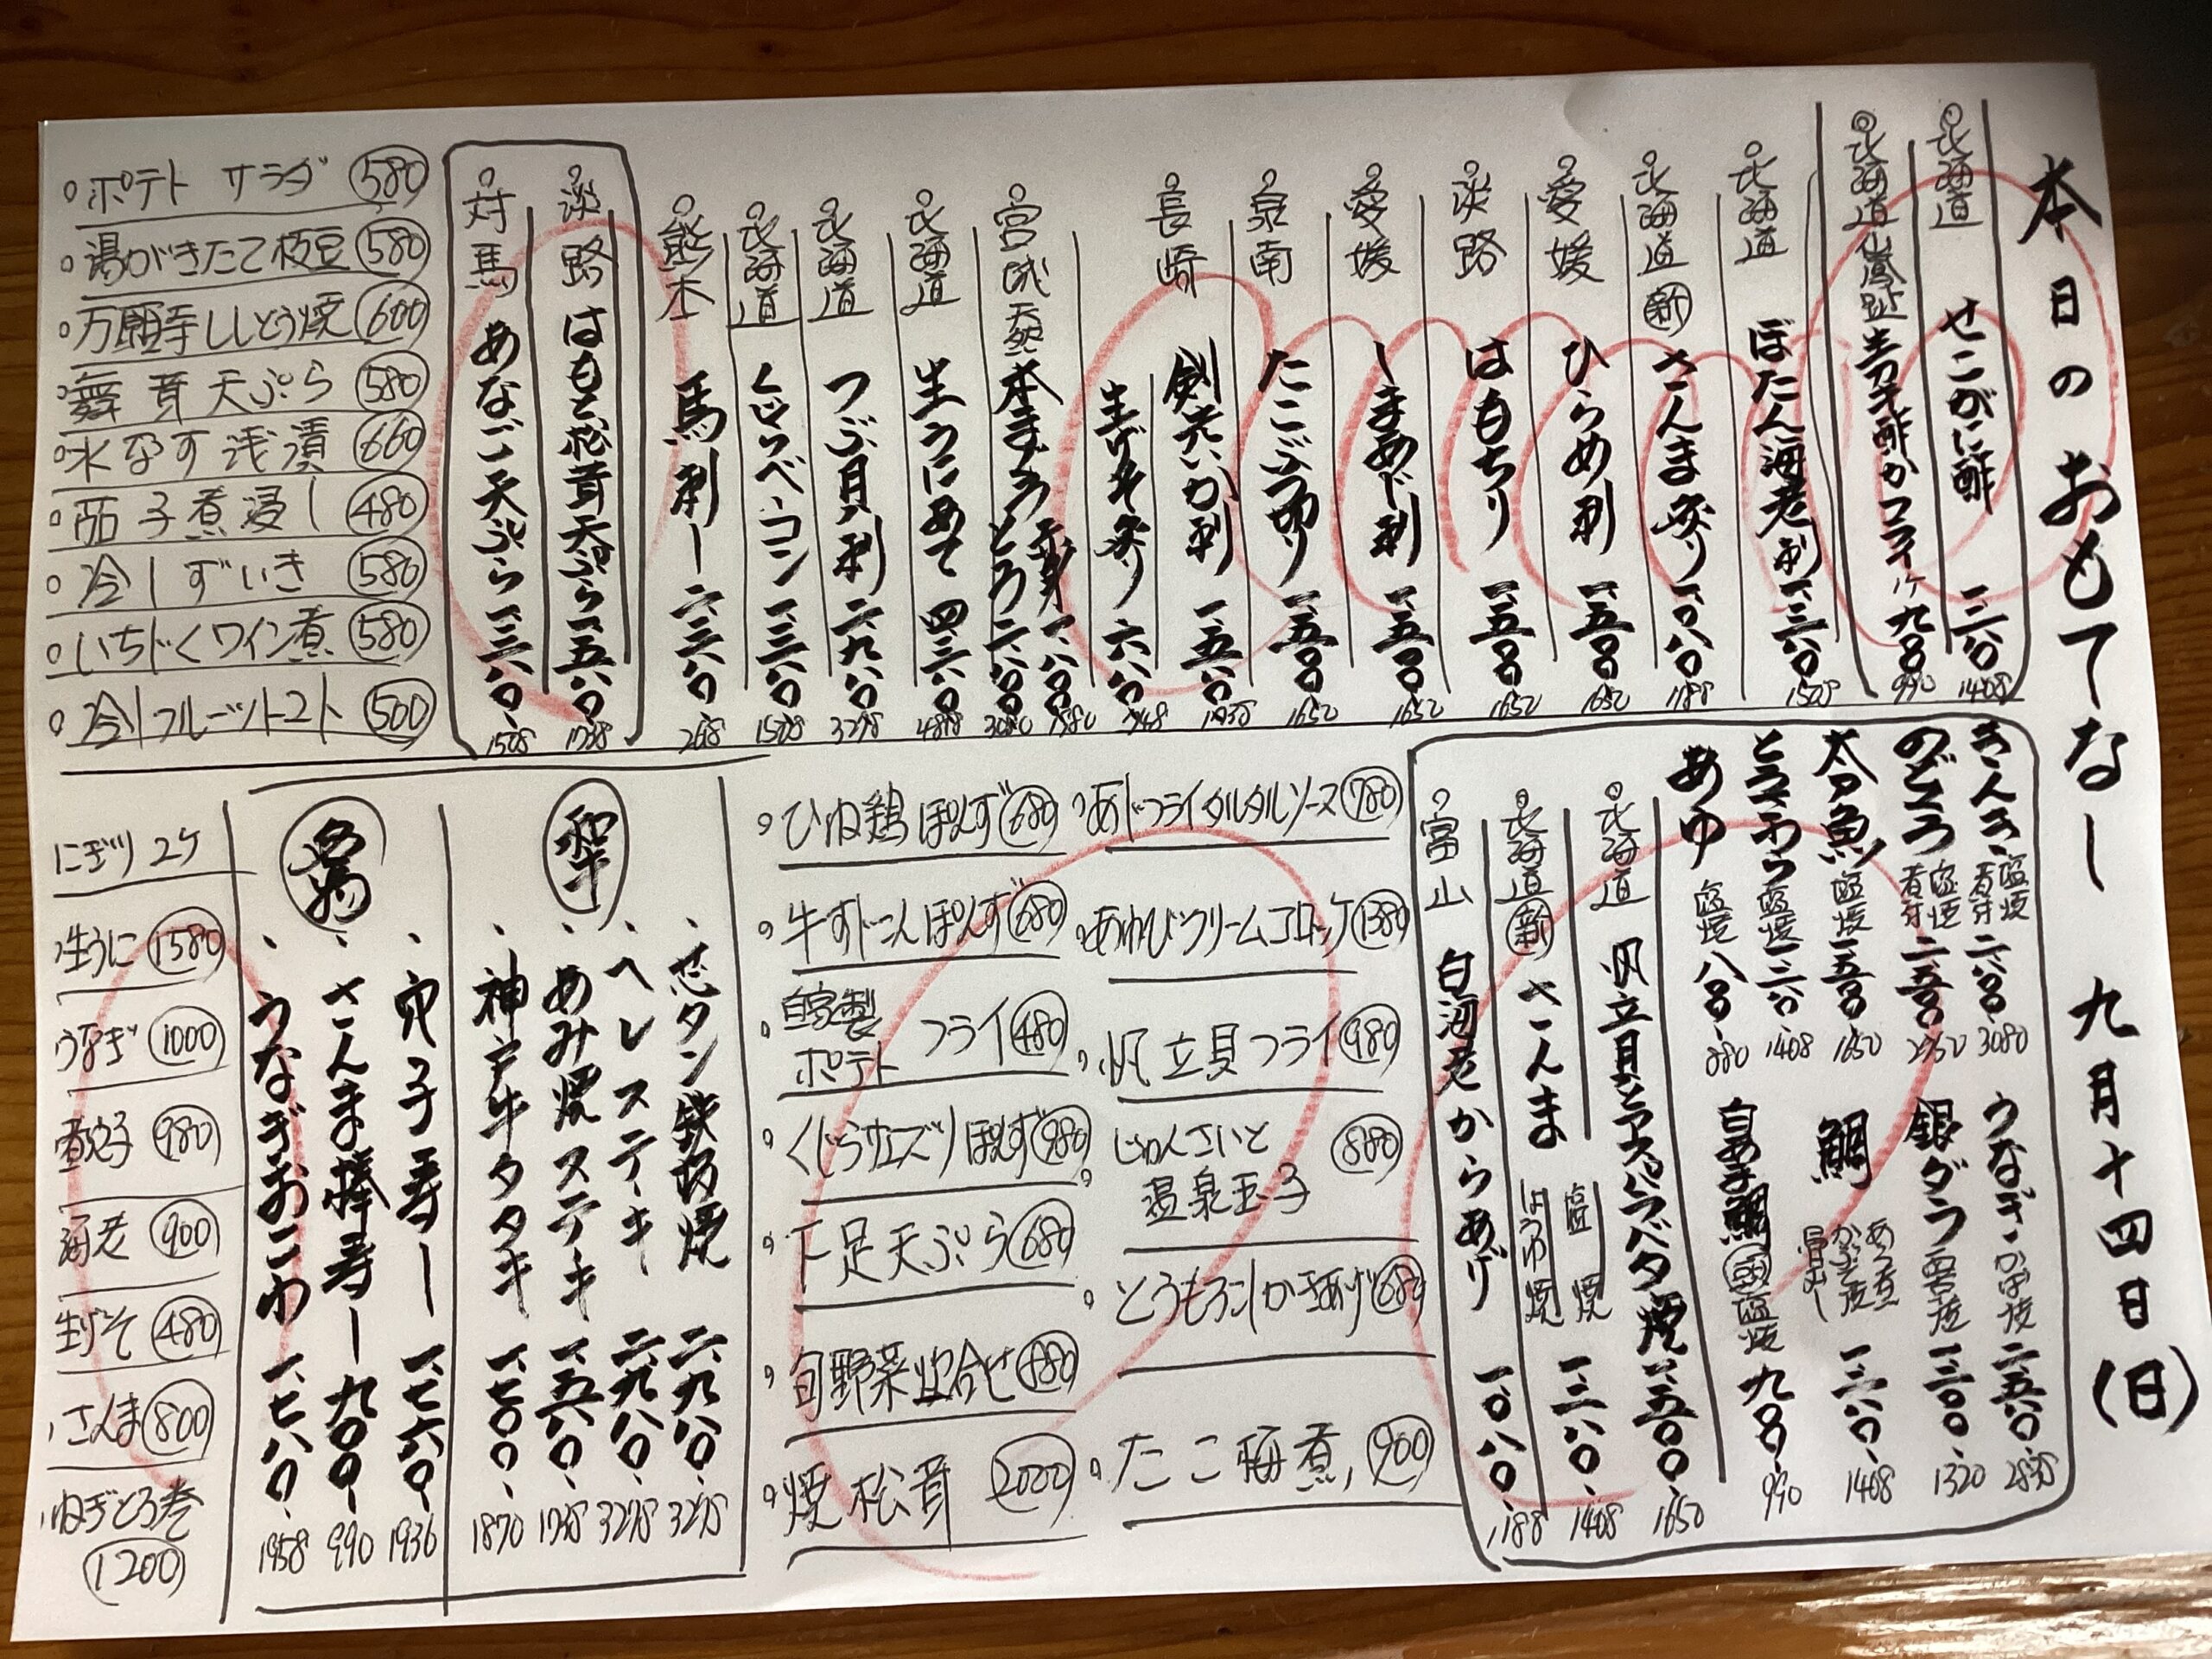 本日のおもてなし 九月十四日(日)
北海道 せこがに酢 一、二八〇 1408
北海道仙鳳趾生カキ酢かフライ 1ケ 九〇〇 990
北海道 ぼたん海老刺 一、三八〇 1518
北海道 新 さんま炙り 一、〇八〇 1188
愛媛 ひらめ刺 一、五〇〇 1650
淡路 はもちり 一、五〇〇 1650
愛媛 しまあじ刺 一、五〇〇 1650
泉南 たこぶつ切り 一、五〇〇 1650
長崎 剣先いか刺
生げそ炙り 六八〇 748
宮城 天然 本まぐろ 赤身 一、八〇〇 1980
とろ 二、八〇〇 3080
北海道 生うにあて 四、三八〇 4818
北海道 つぶ貝刺 二、九八〇 3278
北海道 くじらベーコン 一、三八〇 1518
熊本 馬刺し
淡路 はもと松茸天ぷら 一、五八〇 1738
対馬 あなご天ぷら 一、三八〇 1518
ポテトサラダ 580
湯がきたて枝豆 580
万願寺ししとう焼 600
舞茸天ぷら 580
水なす浅漬 660
茄子煮浸し 480
冷しずいき 580
いちじくワイン煮 580
冷しフルーツトマト 500
きんき 塩焼 煮付 二、八〇〇 3080
のどぐろ 塩焼 煮付
太刀魚 塩焼 一、五〇〇 1650
とろさわら 塩焼 一、二八〇 1408
あゆ 塩焼 八〇〇 880
うなぎ かば焼 二、五八〇 2838
銀ダラ 西京焼 1320
鯛 あら煮 かぶと焼 骨蒸し 1408
白あま鯛 塩焼 九〇〇 990
北海道 帆立貝とアスパラバター焼 一、五〇〇 1650
北海道 新 さんま 塩焼 しょうゆ焼 一、二八〇 1408
富山 白河老からあげ 一、〇八〇 1188
あじフライタルタルソース 780
あわびクリームコロッケ 1380
帆立貝フライ 980
じゅんさいと温泉玉子 880
とうもろこしかきあげ 680
たこ梅煮 900
ひね鶏ぽんず 680
牛すじこんぽんず 680
自家製ポテトフライ 480
くじらサエズリぽんず 980
下足天ぷら 680
旬野菜炊合せ 880
焼松茸 2000
和牛
芯タン鉄板焼 二、九八〇 3278
ヘレステーキ 二、九八〇 3278
あみ焼ステーキ 一、五八〇 1738
神戸牛タタキ 一、七〇〇 1870
名物
穴子寿し 一、七六〇 1936
さんま棒寿し 九〇〇 990
うなぎおこわ 一、七八〇 1958
にぎり 2ケ
生うに 1580
うなぎ 1000
煮穴子 980
海老 900
生げそ 480
さんま 800
ねぎとろ巻 1200